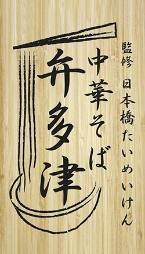 監修 日本橋たいめいけん
中華そば
弁多津